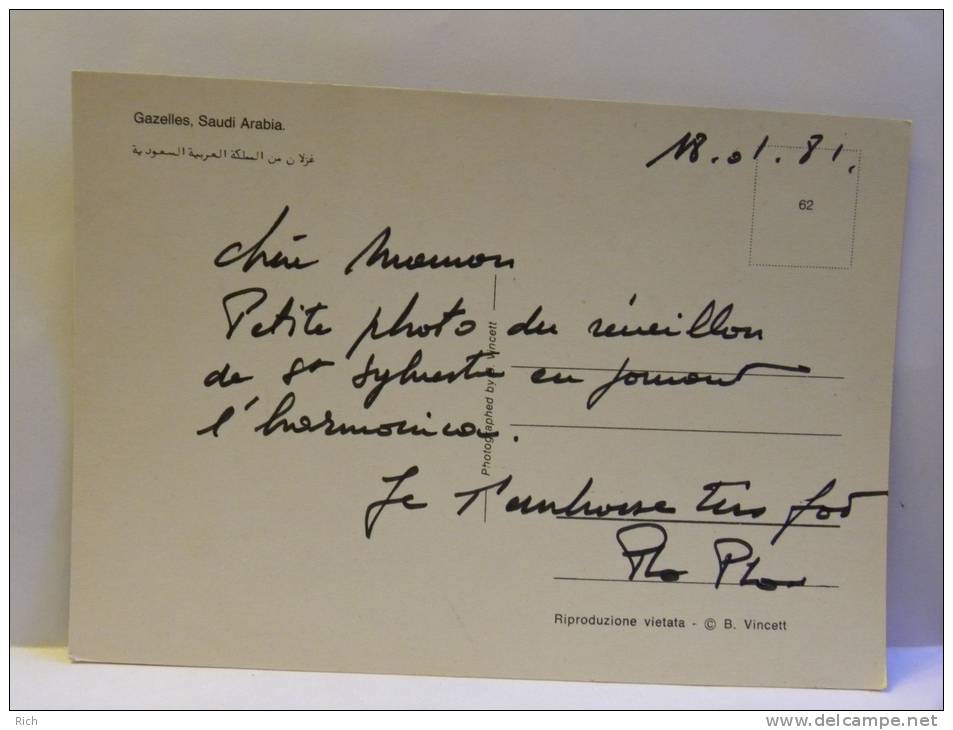 Gazelles, Saudi Arabia.
غزلان من المملكة العربية السعودية
18.01.81.
62
Chère Maman
Petite photo du réveillon
de St Sylvestre en jouant
l'harmonica.
Je t'embrasse très fort
Photographed by B. Vincett
Riproduzione vietata - © B. Vincett
Rich
www.delcampe.net